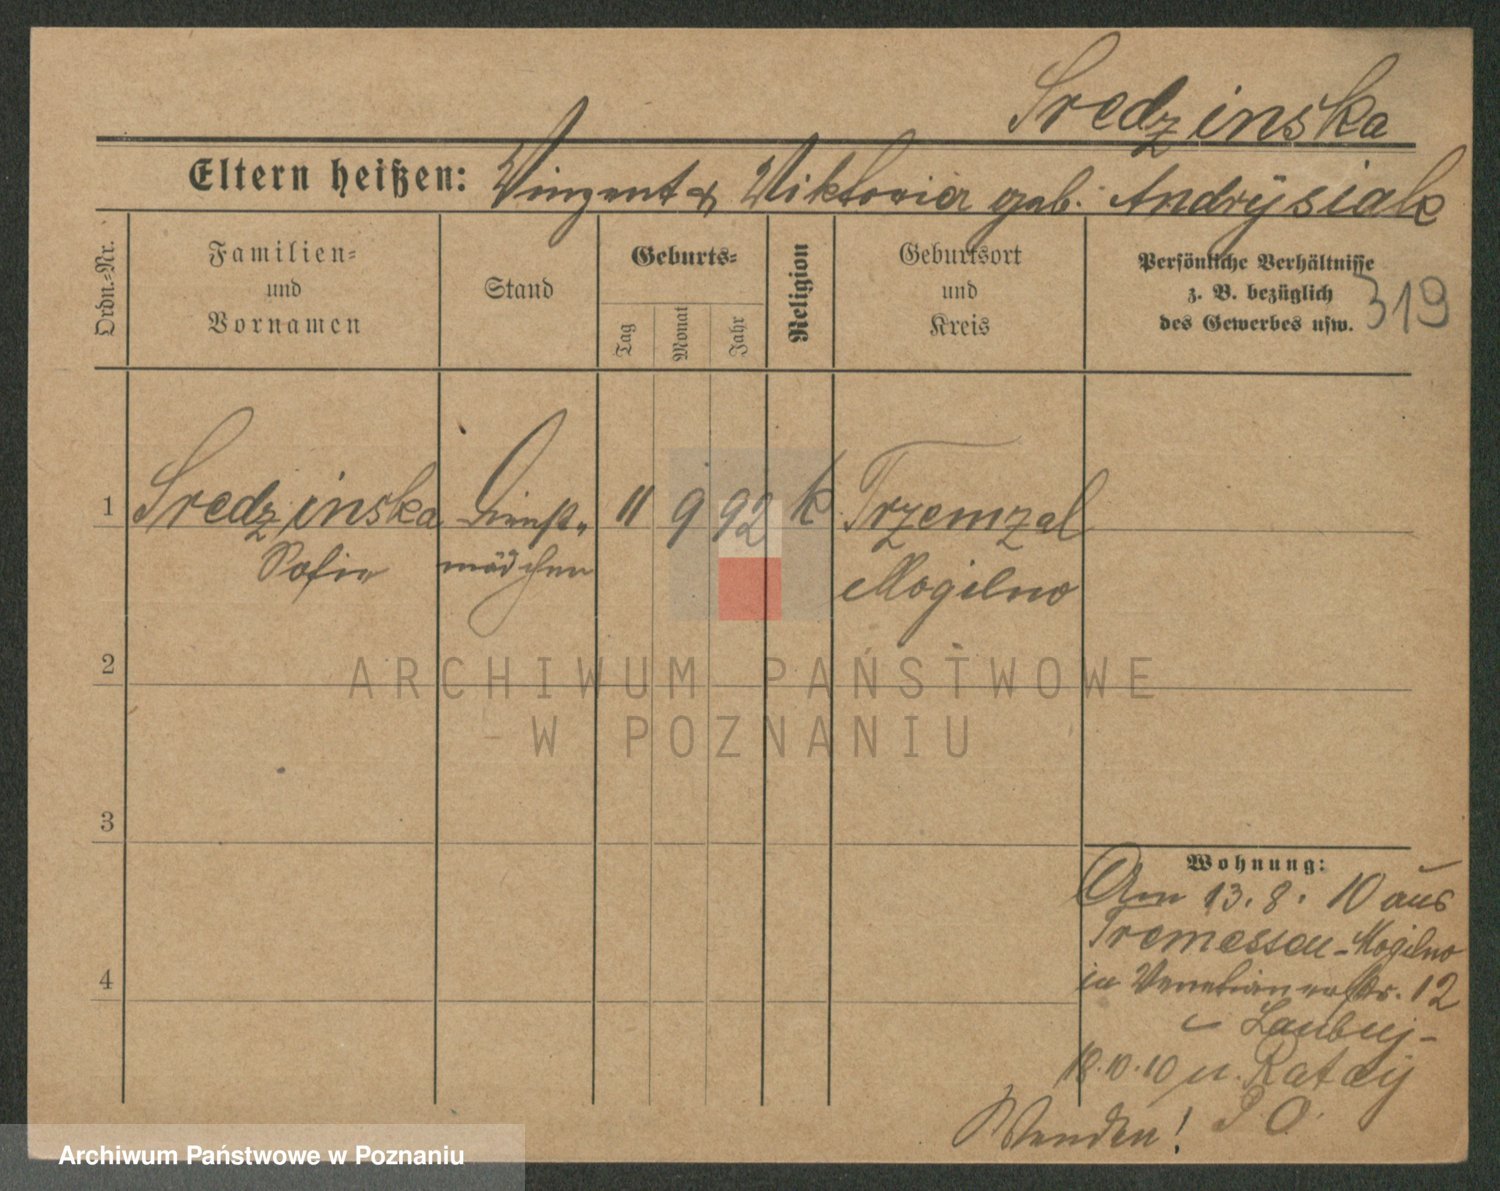 Sredzinska
Eltern heißen: Vinzent & Viktoria geb. Andrÿsiak
Ordn.-Nr.
Familien-
und
Vornamen
Stand
Geburts-
Tag
Monat
Jahr
Religion
Geburtsort
und
Kreis
Persönliche Verhältnisse
z. B. bezüglich
des Gewerbes usw.
319
1 Sredzinska Dienst- 11 9 92 k Trzemzal
Sofie mädchen Mogilno
2
3
4
Wohnung:
Am 13. 8. 10 aus
Tremessen - Mogilno
in Venetianerstr. 12
Laubuj-
18.10.10 n. Rataij
P. O.
Wenden!
ARCHIWUM PAŃSTWOWE
W POZNANIU
Archiwum Państwowe w Poznaniu